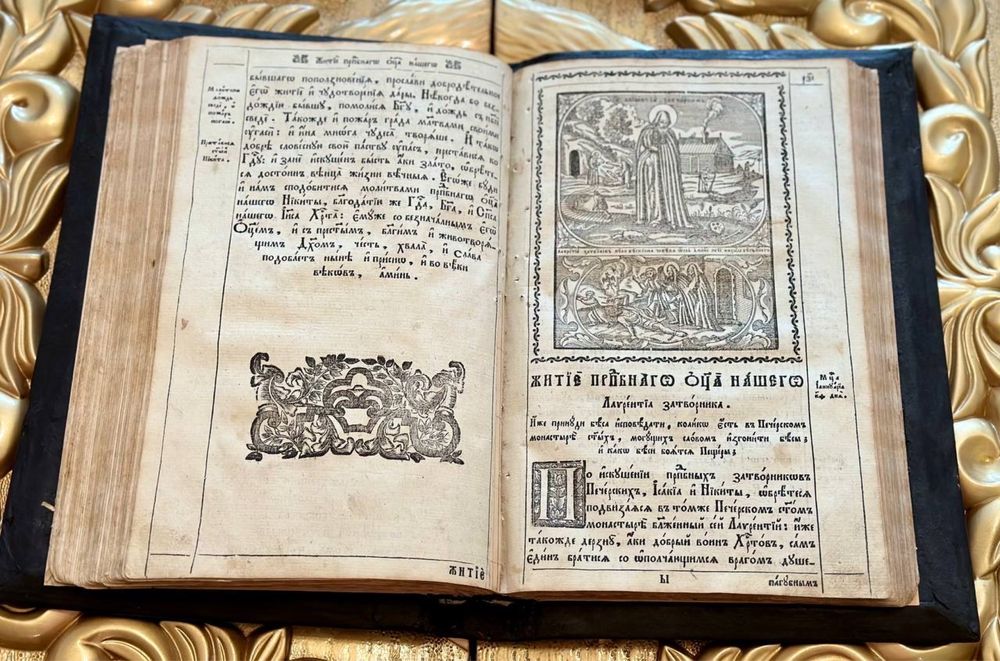 Житїѐ прпⷣбнагѡ ѻ҆ц҃а̀ на́шегѡ
бы́вшагѡ поползнове́нїѧ, просла́ви добродѣ́телное
є҆гѡ̀ житїѐ и҆ чꙋдотворе́нїѧ да́ры. Нѣ́когда бо
дожди́ю бы́вшꙋ, помоли́сѧ Бг҃ꙋ, и҆ до́ждь съ
сведѐ. Та́кожде и҆ пожа́ръ гра́да мл҃твами свои́ми
ᲂу҆гасѝ: и҆ и҆́на мнѡ́га чꙋдеса̀ творѧ́ше. И҆ та́кѡ
до́брѣ слове́снꙋю свою̀ па́ствꙋ ᲂу҆па́съ, преста́висѧ ко
Гд҃ꙋ: и҆ занѐ и҆скꙋше́нъ бы́сть а҆́ки зла́то, ѡ҆брѣ́те-
сѧ досто́инъ вѣнца̀ жи́зни вѣ́чныѧ. Є҆гѡ́же бꙋ́ди
и҆ на́мъ сподо́битисѧ моли́твами прпⷣбнагѡ ѻ҆ц҃а̀
на́шегѡ Ники́ты, блгⷣтїю же Гдⷭ҇а, Бг҃а, и҆ Сп҃са
на́шегѡ І҆и҃са Хрⷭ҇та̀: є҆мꙋ́же со безнача́лнымъ Є҆гѡ̀
Ѻ҆ц҃е́мъ, и҆ съ прест҃ы́мъ, бл҃ги́мъ и҆ животворѧ́-
щимъ Дх҃омъ, че́сть, хвала̀, и҆ сла́ва
подоба́етъ ны́нѣ и҆ при́снѡ, и҆ во вѣ́ки
вѣкѡ́въ, а҆ми́нь.
ЖИТЇЀ
ЖИТЇЀ ПРПⷣБНАГѠ Ѻ҆Ц҃А̀ НА́ШЕГѠ
Лаѵре́нтїа затво́рника.
И҆́же принꙋ́ди бѣ́са и҆сповѣ́дати, коли́кѡ є҆́сть въ Пече́рскомъ
монастырѣ̀ ст҃ы́хъ, могꙋ́щихъ сло́вомъ и҆згони́ти бѣ́сы;
и҆ ка́кѡ бѣ́си боѧ́тсѧ Пеще́ры;
По и҆скꙋше́нїи прпⷣбныхъ затво́рникѡвъ
Пече́рскихъ, І҆са́кїа и҆ Ники́ты, ѡ҆брѣ́тесѧ
подвиза́ѧсѧ въ то́мже Пече́рскомъ ст҃о́мъ
монастырѣ̀ бл҃же́нный се́й Лаѵре́нтїй: и҆́же
та́кожде дерзнꙋ̀, а҆́ки до́брый во́инъ Хрⷭ҇то́въ, са́мъ
є҆ди́нъ бра́тисѧ со ѡ҆полча́ющимсѧ враго́мъ дꙋше-
М҇ца
І҆аннꙋа́рїа
дн҃ѧ.
ы
па́гꙋбнымъ